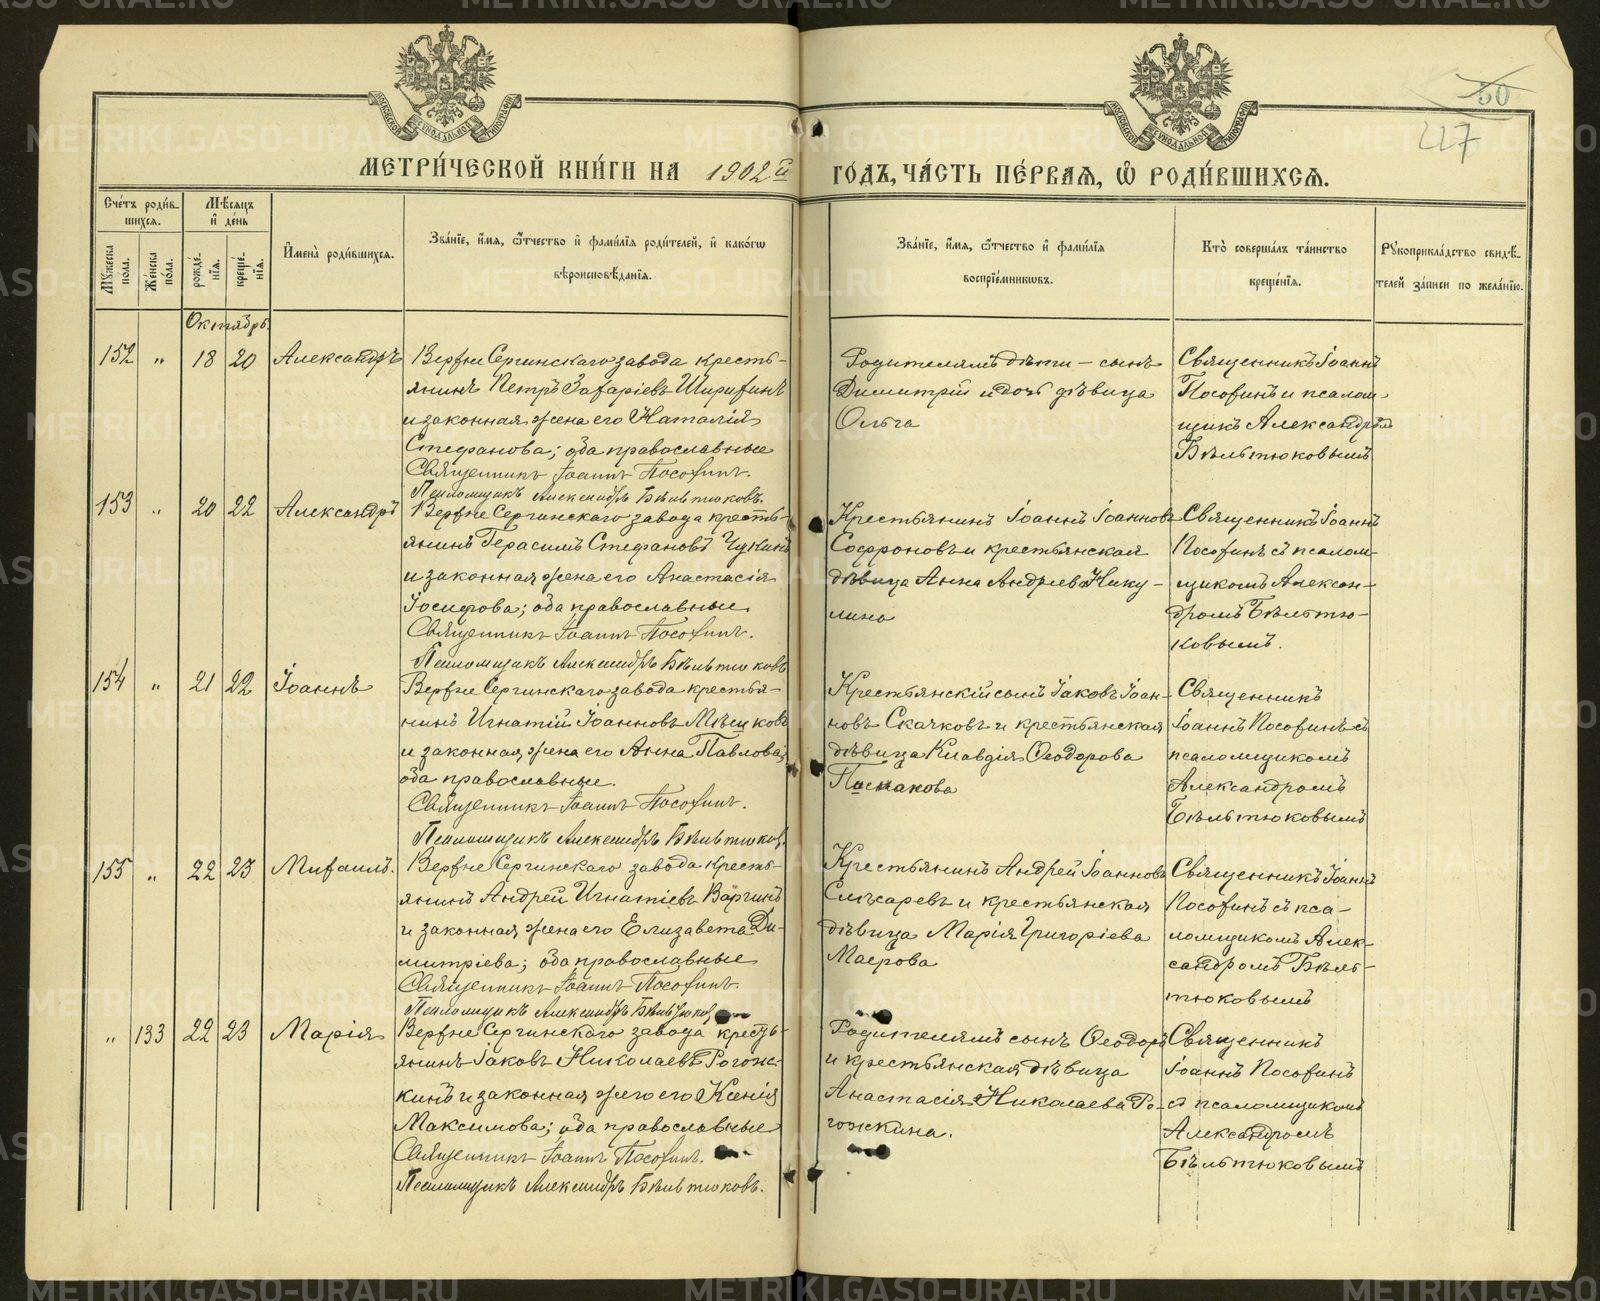 METRIKI.GASO-URAL.RU
50
227
МЕТРИ́ЧЕСКОЙ КНИ́ГИ НА 1902й ГО́ДЪ, ЧА́СТЬ ПЕ́РВАЯ, Ѽ РОДИ́ВШИХСѦ.
Сче́тъ роди́вшихся.
Мꙋ́жеска пола.
Же́нска по́ла.
Мѣ́сяцъ и де́нь
рожде́нїя.
креще́нїя.
И҆мена̀ роди́вшихся.
Зва́нїе, и҆́мя, ѻ҆́тчество и҆ фами́лїя роди́телей, и҆ како́гѡ
вѣроисповѣ́данїя.
Зва́нїе, и҆́мя, ѻ҆́тчество и҆ фами́лїя
воспрїе́мникѡвъ.
Кто̀ соверша́лъ та́инство
креще́нїя.
Рꙋкоприкла́дство свидѣ́-
телей за́писи по жела́нїю.
Октябрь.
152 " 18 20 Александръ
Верхне Сергинскаго завода кресть-
янинъ Петръ Захаріевъ Ширихинъ
и законная жена его Наталія
Стефанова; оба православные
Священникъ Іоаннъ Посохинъ.
Псаломщикъ Александръ Бѣльтюковъ.
Родителямъ дѣти - сынъ
Димитрій и дочь дѣвица
Ольга
Священникъ Іоаннъ
Посохинъ и псалом-
щикъ Александръ
Бѣльтюковымъ
153 " 20 22 Александръ
Верхне Сергинскаго завода кресть-
янинъ Герасимъ Стефановъ Чукинъ
и законная жена его Анастасія
Іосифова; оба православные
Священникъ Іоаннъ Посохинъ.
Псаломщикъ Александръ Бѣльтюковъ
Крестьянинъ Іоаннъ Іоанновъ
Софроновъ и крестьянская
дѣвица Анна Андреева Нику-
лина
Священникъ Іоаннъ
Посохинъ съ псалом-
щикомъ Алексан-
дромъ Бѣльтю-
ковымъ.
154 " 21 22 Іоаннъ
Верхне Сергинскаго завода крестья-
нинъ Игнатій Іоанновъ Мѣшковъ
и законная жена его Анна Павлова;
оба православные.
Священникъ Іоаннъ Посохинъ.
Псаломщикъ Александръ Бѣльтюковъ
Крестьянскій сынъ Іаковъ Іоан-
новъ Скачковъ и крестьянская
дѣвица Клавдія Ѳеодорова
Священникъ
Іоаннъ Посохинъ съ
псаломщикомъ
Александромъ
Бѣльтюковымъ
155 " 22 23 Михаилъ.
Верхне Сергинскаго завода кресть-
янинъ Андрей Игнатіевъ Варгинъ
и законная жена его Елизавета Ди-
митріева; оба православные
Священникъ Іоаннъ Посохинъ.
Псаломщикъ Александръ Бѣльтюковъ
Крестьянинъ Андрей Іоанновъ
Слѣсаревъ и крестьянская
дѣвица Марія Григоріева
Маерова
Священникъ Іоаннъ
Посохинъ съ пса-
ломщикомъ Алек-
сандромъ Бѣль-
тюковымъ
" 133 22 23 Марія
Верхне Сергинскаго завода кресть-
янинъ Іаковъ Николаевъ Рогож-
кинъ и законная жего его Ксенія
Максимова; оба православные
Священникъ Іоаннъ Посохинъ.
Псаломщикъ Александръ Бѣльтюковъ.
Родителямъ сынъ Ѳеодоръ
и крестьянская дѣвица
Анастасія Николаева Ро-
гожкина.
Священникъ
Іоаннъ Посохинъ
съ псаломщикомъ
Александромъ
Бѣльтюковымъ